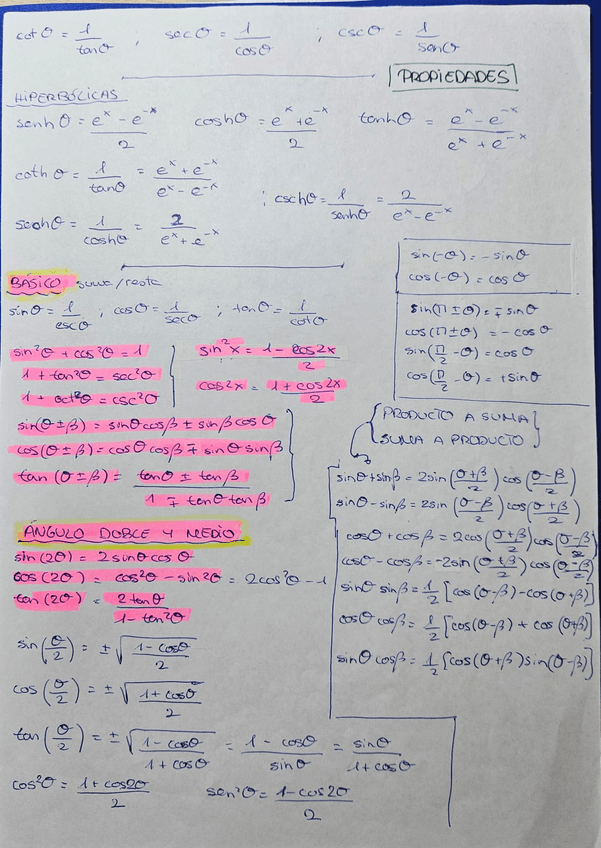 cot θ = 1/tanθ ; sec θ = 1/cosθ ; csc θ = 1/senθ
PROPIEDADES
HIPERBÓLICAS
senh θ = (e^x − e^-x)/2 cosh θ = (e^x + e^-x)/2 tanh θ = (e^x − e^-x)/(e^x + e^-x)
coth θ = 1/tanθ = (e^x + e^-x)/(e^x − e^-x)
; csch θ = 1/senhθ = 2/(e^x − e^-x)
sech θ = 1/coshθ = 2/(e^x + e^-x)
sin(-θ) = - sin θ
cos(-θ) = cos θ
BÁSICO suma/resta
sin θ = 1/cscθ ; cos θ = 1/secθ ; tan θ = 1/cotθ
sin(π ± θ) = ∓ sin θ
cos(π ± θ) = - cos θ
sin(π/2 - θ) = cos θ
cos(π/2 - θ) = + sin θ
sin²θ + cos²θ = 1
1 + tan²θ = sec²θ
1 + cot²θ = csc²θ
sin²x = (1 - cos2x)/2
cos2x = (1 + cos2x)/2
sin(θ ± β) = sinθ cosβ ± sinβ cosθ
cos(θ ± β) = cosθ cosβ ∓ sinθ sinβ
tan(θ ± β) = (tanθ ± tanβ)/(1 ∓ tanθ tanβ)
PRODUCTO A SUMA
SUMA A PRODUCTO
sinθ + sinβ = 2sin((θ+β)/2) cos((θ-β)/2)
sinθ - sinβ = 2sin((θ-β)/2) cos((θ+β)/2)
cosθ + cosβ = 2cos((θ+β)/2) cos((θ-β)/2)
cosθ - cosβ = -2sin((θ+β)/2) cos((θ-β)/2)
sinθ sinβ = 1/2 [cos(θ-β) - cos(θ+β)]
cosθ cosβ = 1/2 [cos(θ-β) + cos(θ+β)]
sinθ cosβ = 1/2 [cos(θ+β) sin(θ-β)]
ÁNGULO DOBLE Y MEDIO
sin(2θ) = 2 sinθ cos θ
cos(2θ) = cos²θ - sin²θ = 2cos²θ - 1
tan(2θ) = 2tanθ/(1 - tan²θ)
sin(θ/2) = ± √((1 - cosθ)/2)
cos(θ/2) = ± √((1 + cosθ)/2)
tan(θ/2) = ± √((1 - cosθ)/(1 + cosθ)) = (1 - cosθ)/sinθ = sinθ/(1 + cosθ)
cos²θ = (1 + cos2θ)/2 sen²θ = (1 - cos2θ)/2